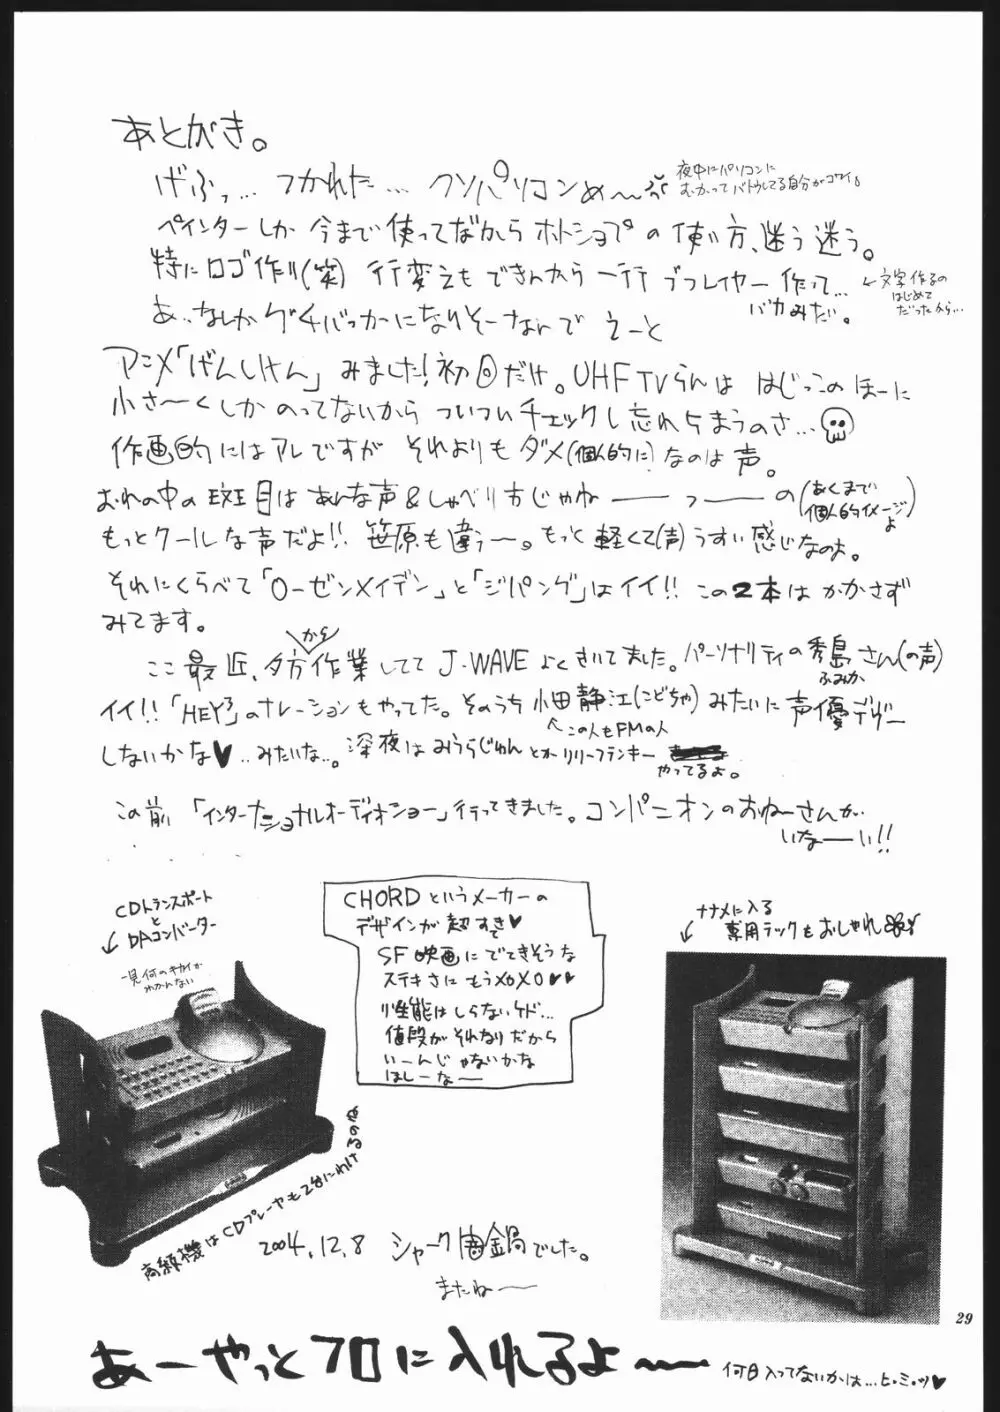 あとがき。
げふっ… つかれた… クソパソコンめ〜
夜中にパソコンに
むかってバトウしてる自分がコワイ。
ペインターしか今まで使ってなかったから ホトショプの使い方、迷う迷う。
特にロゴ作り(笑) 行変えもできんから一行ずつレイヤー作って…
バカみたい。
←文字作るの
はじめて
だったから…
あ、なんかグチばっかになりそーなんで えーと
アニメ「げんしけん」みました!初回だけ。UHF TVらんは はじっこのほーに
小さ〜くしか のってないから ついついチェックし忘れちまうのさ…
作画的にはアレですが それよりもダメ(個人的に)なのは声。
おれの中の斑目はあんな声&しゃべり方じゃねーーっーーの(あくまで
個人的イメージ
よ)
もっとクールな声だよ!! 笹原も違う〜。もっと軽くて(声)うすい感じなのよ。
それにくらべて「ローゼンメイデン」と「ジパング」はイイ!! この2本は かかさず
みてます。
ここ最近、夕方から作業してて J-WAVE よくきいてました。パーソナリティの秀島さん(の声)
ふみか
イイ!!「HEY³」のナレーションもやってた。そのうち小田静江(こどちゃ)みたいに声優デビュー
↖この人もFMの人
しないかな♥…みたいな…。深夜はみうらじゅんとかリリーフランキー
やってるよ。
この前「インターナショナルオーディオショー」行ってきました。コンパニオンのおねーさんが
いなーい!!
CDトランスポート
と
DAコンバーター
一見何のキカイか
わかんない
CHORDというメーカーの
デザインが超すてき♥
SF映画にでてきそうな
ステキさに もうメロメロ♥♥
性能はしらないケド…
値段がそれなりだから
いーんじゃないかな
ほしーなー
ナナメに入る
専用ラックもおしゃれ
高級機はCDプレーヤも2台にわけるのね
2004.12.8 シャーク鍋でした。
またねー
29
あーやっとフロに入れるよ〜
何日入ってないかは…ヒ・ミ・ツ♥